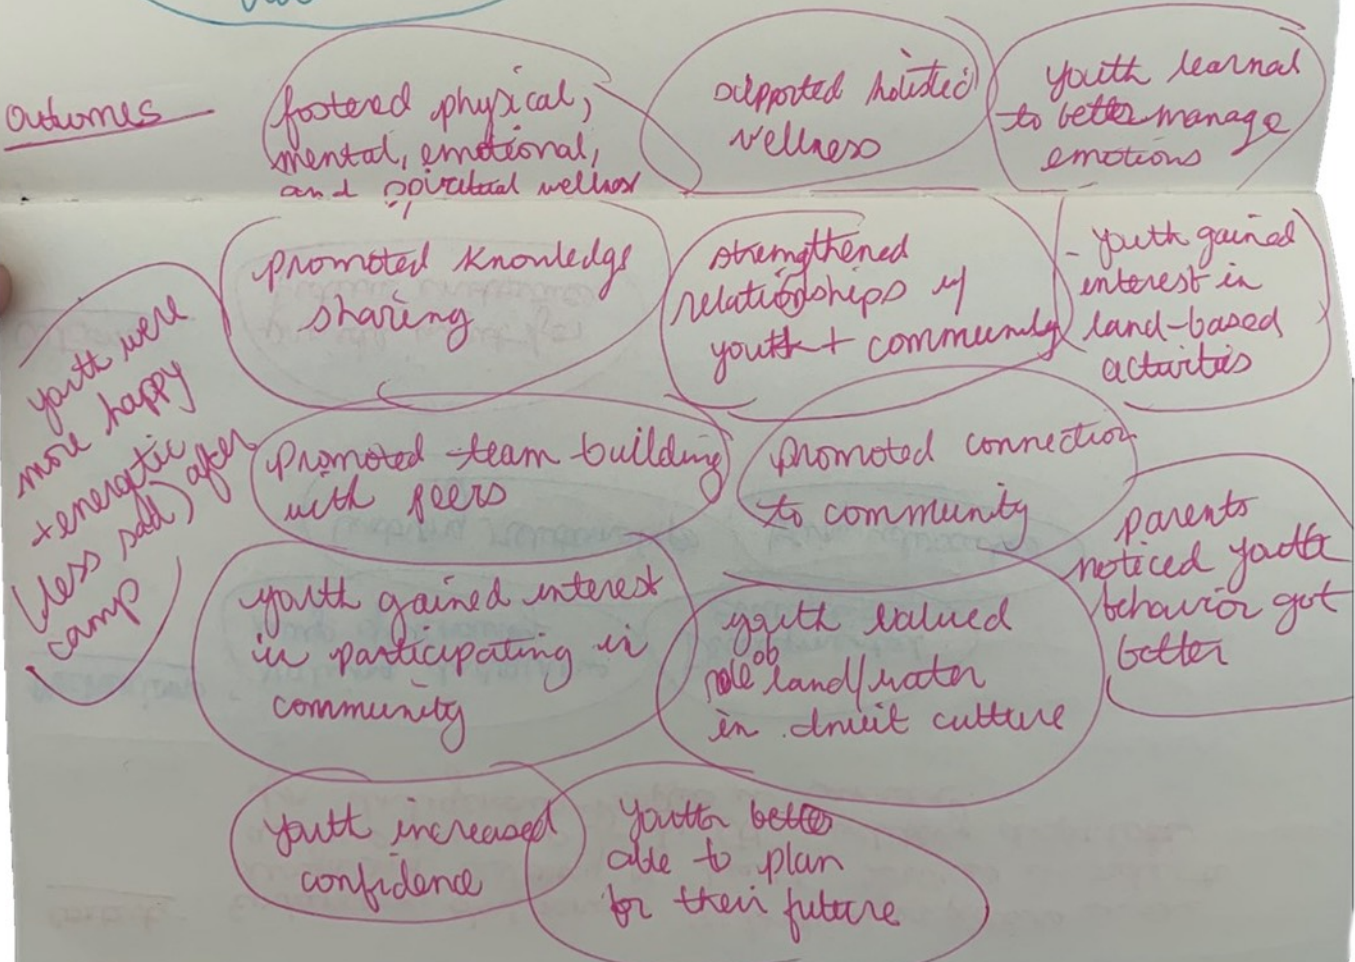 outcomes
fostered physical,
mental, emotional,
and spiritual wellness
supported holistic
wellness
youth learned
to better manage
emotions
promoted knowledge
sharing
strengthened
relationships w/
youth + community
- youth gained
interest in
land-based
activities
youth were
more happy
+ energetic
(less sad) after
camp
promoted team building
with peers
promoted connection
to community
parents
noticed youth
behavior got
better
youth gained interest
in participating in
community
youth valued
role of land/water
in Inuit culture
youth increased
confidence
Youth better
able to plan
for their future